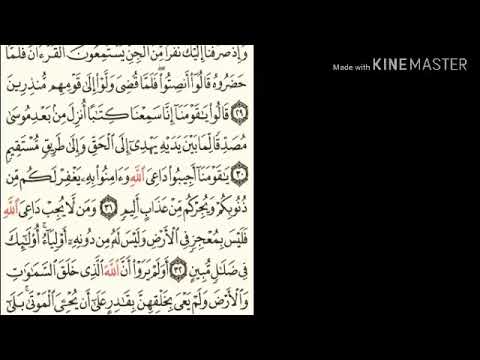 وَإِذْ صَرَفْنَا إِلَيْكَ نَفَرًا مِّنَ الْجِنِّ يَسْتَمِعُونَ الْقُرْءَانَ فَلَمَّا
حَضَرُوهُ قَالُوا أَنصِتُوا فَلَمَّا قُضِيَ وَلَّوْا إِلَىٰ قَوْمِهِم مُّنذِرِينَ
٢٩ قَالُوا يَٰقَوْمَنَا إِنَّا سَمِعْنَا كِتَٰبًا أُنزِلَ مِنۢ بَعْدِ مُوسَىٰ
مُصَدِّقًا لِّمَا بَيْنَ يَدَيْهِ يَهْدِي إِلَى الْحَقِّ وَإِلَىٰ طَرِيقٍ مُّسْتَقِيمٍ
٣٠ يَٰقَوْمَنَا أَجِيبُوا دَاعِيَ اللَّهِ وَءَامِنُوا بِهِ يَغْفِرْ لَكُم مِّن
ذُنُوبِكُمْ وَيُجِرْكُم مِّنْ عَذَابٍ أَلِيمٍ ٣١ وَمَن لَّا يُجِبْ دَاعِيَ اللَّهِ
فَلَيْسَ بِمُعْجِزٍ فِي الْأَرْضِ وَلَيْسَ لَهُ مِن دُونِهِ أَوْلِيَاءُ أُولَٰئِكَ
فِي ضَلَٰلٍ مُّبِينٍ ٣٢ أَوَلَمْ يَرَوْا أَنَّ اللَّهَ الَّذِي خَلَقَ السَّمَٰوَٰتِ
وَالْأَرْضَ وَلَمْ يَعْيَ بِخَلْقِهِنَّ بِقَٰدِرٍ عَلَىٰ أَن يُحْـِۧيَ الْمَوْتَىٰ بَلَىٰ
Made with KINEMASTER